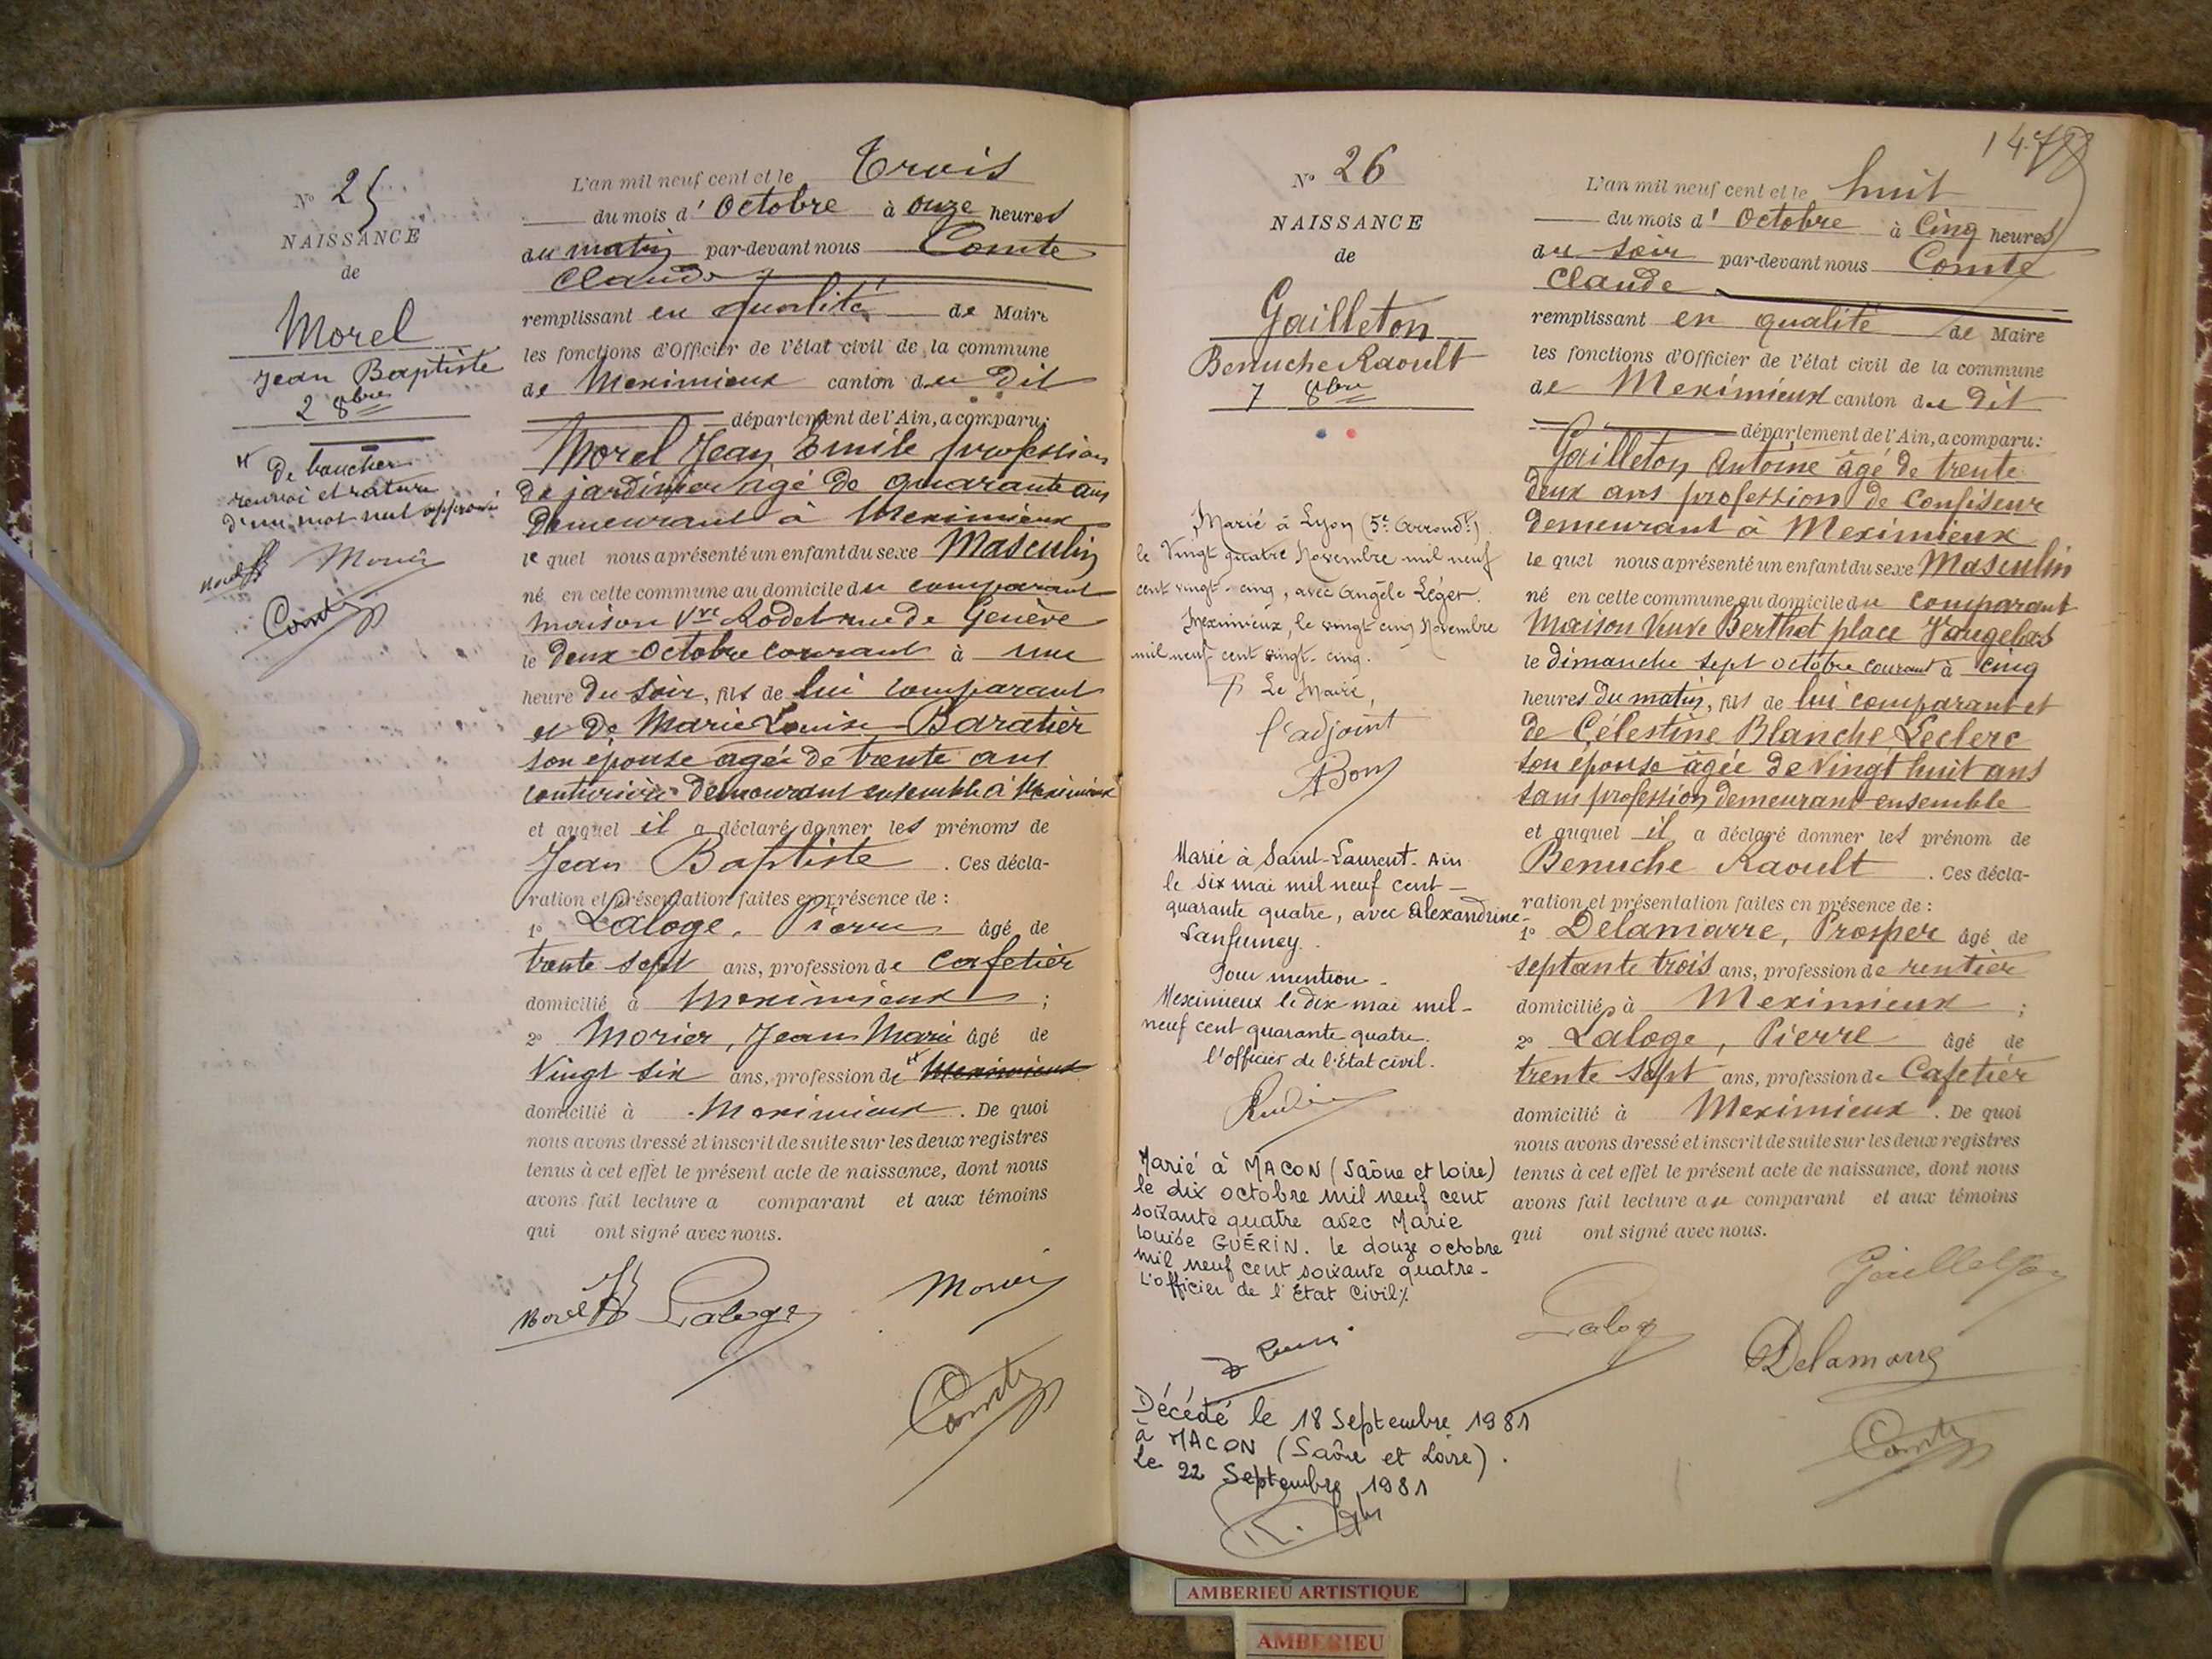 N° 25
NAISSANCE
de
Morel
Jean Baptiste
2 8bre
de boucher
renvoi et rature
d'un mot nul approuvé
Morel Morier
Comte
L'an mil neuf cent et le Trois
du mois d'Octobre à onze heures
du matin par-devant nous Comte
Claude
remplissant en qualité de Maire
les fonctions d'Officier de l'état civil de la commune
de Meximieux canton du dit
département de l'Ain, a comparu:
Morel Jean Emile profession
de jardinier agé de quarante ans
demeurant à Meximieux
lequel nous a présenté un enfant du sexe Masculin
né en cette commune au domicile du comparant
maison Vve Rodet rue de Genève
le deux Octobre courant à une
heure du soir, fils de lui comparant
et de Marie Louise Baratier
son épouse agée de trente ans
couturière demeurant ensemble à Meximieux
et auquel il a déclaré donner les prénoms de
Jean Baptiste. Ces décla-
ration et présentation faites en présence de :
1° Laloge, Pierre âgé de
trente sept ans, profession de cafetier
domicilié à Meximieux ;
2° Morier, Jean Marie âgé de
Vingt six ans, profession de Meximieux
domicilié à Meximieux. De quoi
nous avons dressé et inscrit de suite sur les deux registres
tenus à cet effet le présent acte de naissance, dont nous
avons fait lecture a comparant et aux témoins
qui ont signé avec nous.
Morel Laloge Morier
Comte
1478
N° 26
NAISSANCE
de
Gailleton
Benuche Raoult
7 8bre
Marié à Lyon (5e Arrondt)
le Vingt quatre Novembre mil neuf
cent vingt-cinq, avec Angèle Léger.
Meximieux, le vingt cinq Novembre
mil neuf cent vingt-cinq.
Le Maire,
l'adjoint
Marié à Saint-Laurent. Ain
le six mai mil neuf cent
quarante quatre, avec Alexandrine
Lanfumey.
Pour mention
Meximieux le dix mai mil
neuf cent quarante quatre.
l'officier de l'Etat civil.
Marié à MACON (Saône et Loire)
le dix octobre mil neuf cent
soixante quatre avec Marie
Louise GUÉRIN. le douze octobre
mil neuf cent soixante quatre-
L'officier de l'État Civil
Décédé le 18 Septembre 1981
à MACON (Saône et Loire).
Le 22 Septembre 1981
L'an mil neuf cent et le huit
du mois d'Octobre à Cinq heures
du soir par-devant nous Comte
Claude
remplissant en qualité de Maire
les fonctions d'Officier de l'état civil de la commune
de Meximieux canton du dit
département de l'Ain, a comparu:
Gailleton Antoine âgé de trente
deux ans profession de Confiseur
demeurant à Meximieux
lequel nous a présenté un enfant du sexe Masculin
né en cette commune au domicile du comparant
Maison Veuve Berthet place Vaugelas
le dimanche sept octobre courant à cinq
heures du matin, fils de lui comparant et
de Célestine Blanche Leclerc
son épouse âgée de Vingt huit ans
sans profession demeurant ensemble
et auquel il a déclaré donner les prénom de
Benuche Raoult. Ces décla-
ration et présentation faites en présence de :
1° Delamarre, Prosper âgé de
septante trois ans, profession de rentier
domicilié à Meximieux ;
2° Laloge, Pierre âgé de
trente sept ans, profession de Cafetier
domicilié à Meximieux. De quoi
nous avons dressé et inscrit de suite sur les deux registres
tenus à cet effet le présent acte de naissance, dont nous
avons fait lecture au comparant et aux témoins
qui ont signé avec nous.
Gailleton
Laloge
Delamarre
Comte
AMBERIEU ARTISTIQUE
AMBERIEU